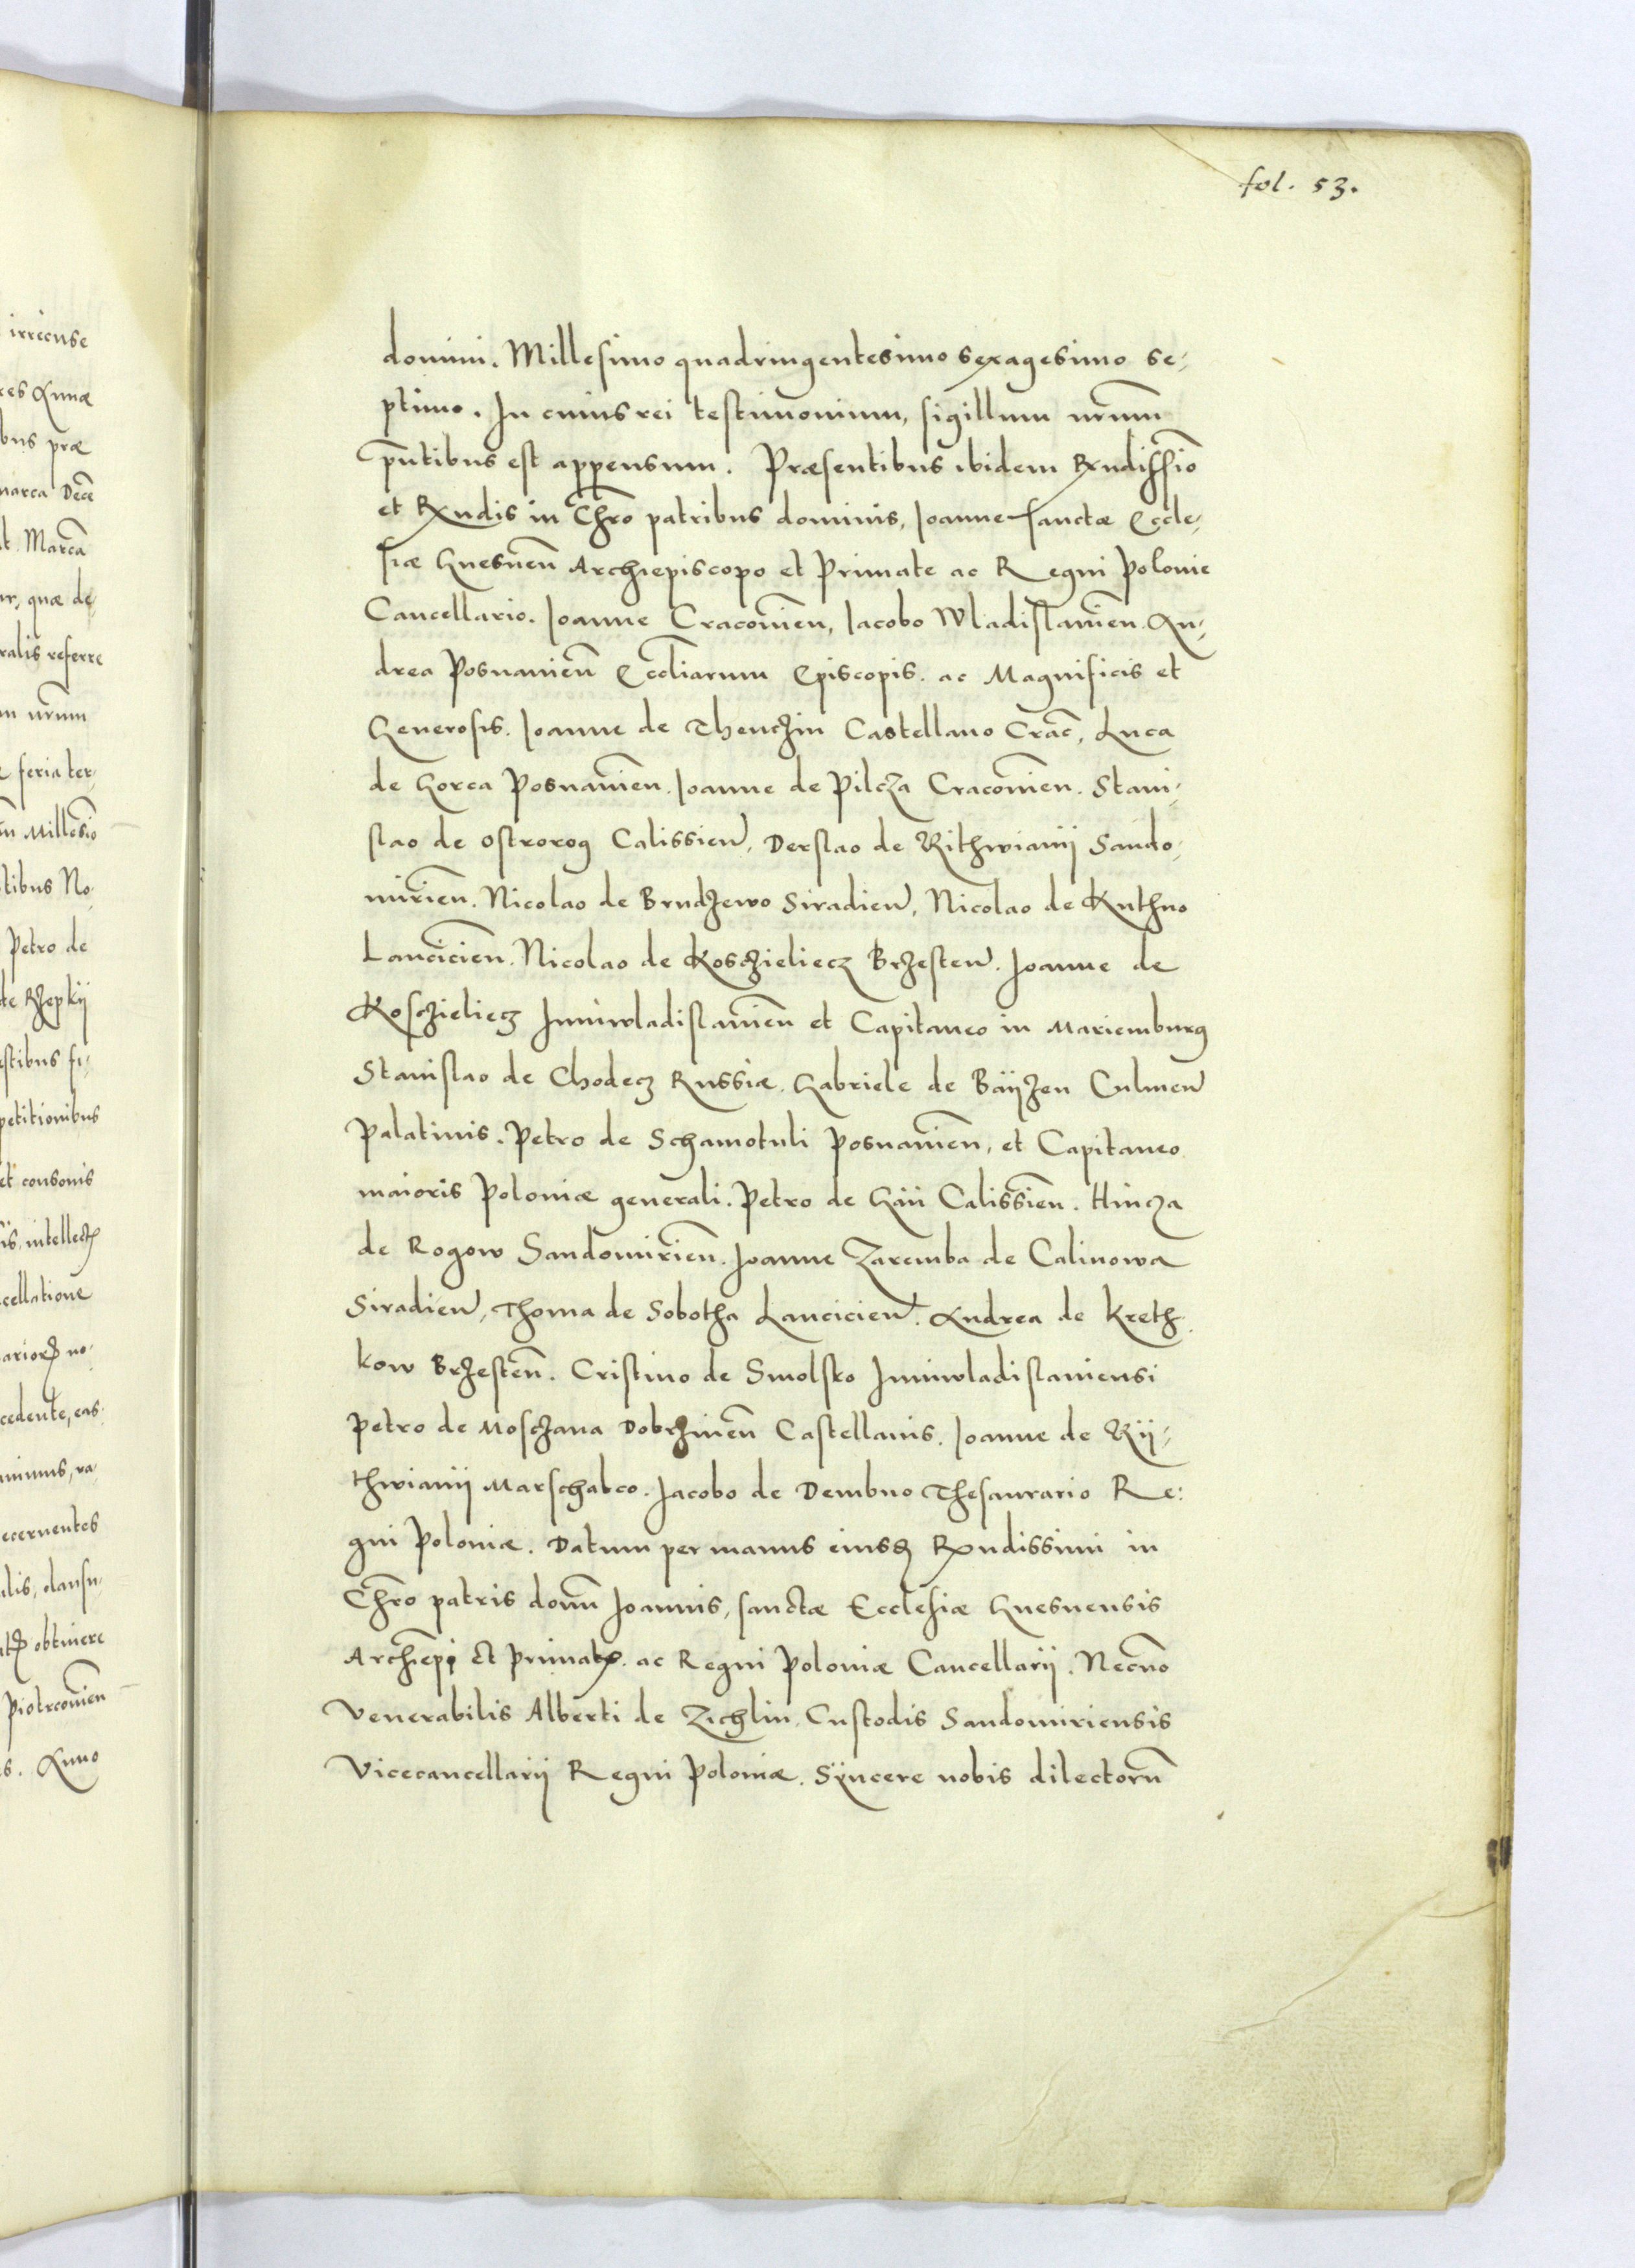 fol. 53.
irrecuse
domini. Millesimo quadringentesimo sexagesimo se-
res Annæ
ptimo. In cuius rei testimonium, sigillum nr̄um
bus præ
p̄ntibus est appensum. Præsentibus ibidem Rx̄ndissīo
marca Decē
et Rxndis in Chr̄o patribus dominis, Joanne sanctæ Eccle-
t. Marcā
siæ Gnesnen̄ Archiepiscopo et Primate ac Regni Polonie
ur, quæ de-
Cancellario. Joanne Cracovien̄, Jacobo Wladislavien̄. An-
ralis referre
drea Posnanien̄ Eccl̄iarum Episcopis. ac Magnificis et
m nr̄um
Generosis. Joanne de Thenczin Castellano Crac̄, Luca
feria ter-
de Gorca Posnanien̄. Joanne de Pilcza Cracovien̄. Stani-
Millesīo
slao de Ostrorog Calissien̄, Derslao de Rithwianij Sando-
tibus No-
mirien̄. Nicolao de Brudzewo Siradien̄, Nicolao de Kuthno
Petro de
Lancicien̄. Nicolao de Kosczieliecz Brzesten̄. Joanne de
de Rzepkij
Kosczieliecz Juniwladislavien̄ et Capitaneo in Mariemburg
stibus fi-
Stanislao de Chodecz Russiæ. Gabriele de Baÿzen Culmen̄
petitionibus
Palatinis. Petro de Schamotuli Posnanien̄, et Capitaneo
et consonis
maioris Poloniæ generali. Petro de Gaii Calissien̄. Hincza
de Rogow Sandomirien̄. Joanne Zaremba de Calinowa
cellatione
Siradien̄, Thoma de Sobotha Lancicien̄. Andrea de Kreth-
no-
kow Brzesten̄. Cristino de Smolsko Juniwladislaviensi
cedente, eas-
Petro de Mosczana Dobrzinen̄ Castellanis. Joanne de Rij-
thwianij Marschalco. Jacobo de Dembno Thesaurario Re:
ecernentes
gni Poloniæ. Datum per manus eiusꝫ Rxndissimi in
Chr̄o patris domn̄ Joannis, sanctæ Ecclesiæ Gnesnensis
obtinere
Archiēpi et Primatꝭ. ac Regni Poloniæ Cancellarij. Necn̄o
Piotrcovien̄
Venerabilis Alberti de Zichlin. Custodis Sandomiriensis
s. Anno
Vicecancellarij Regni Poloniæ. Sÿncere nobis dilectorū